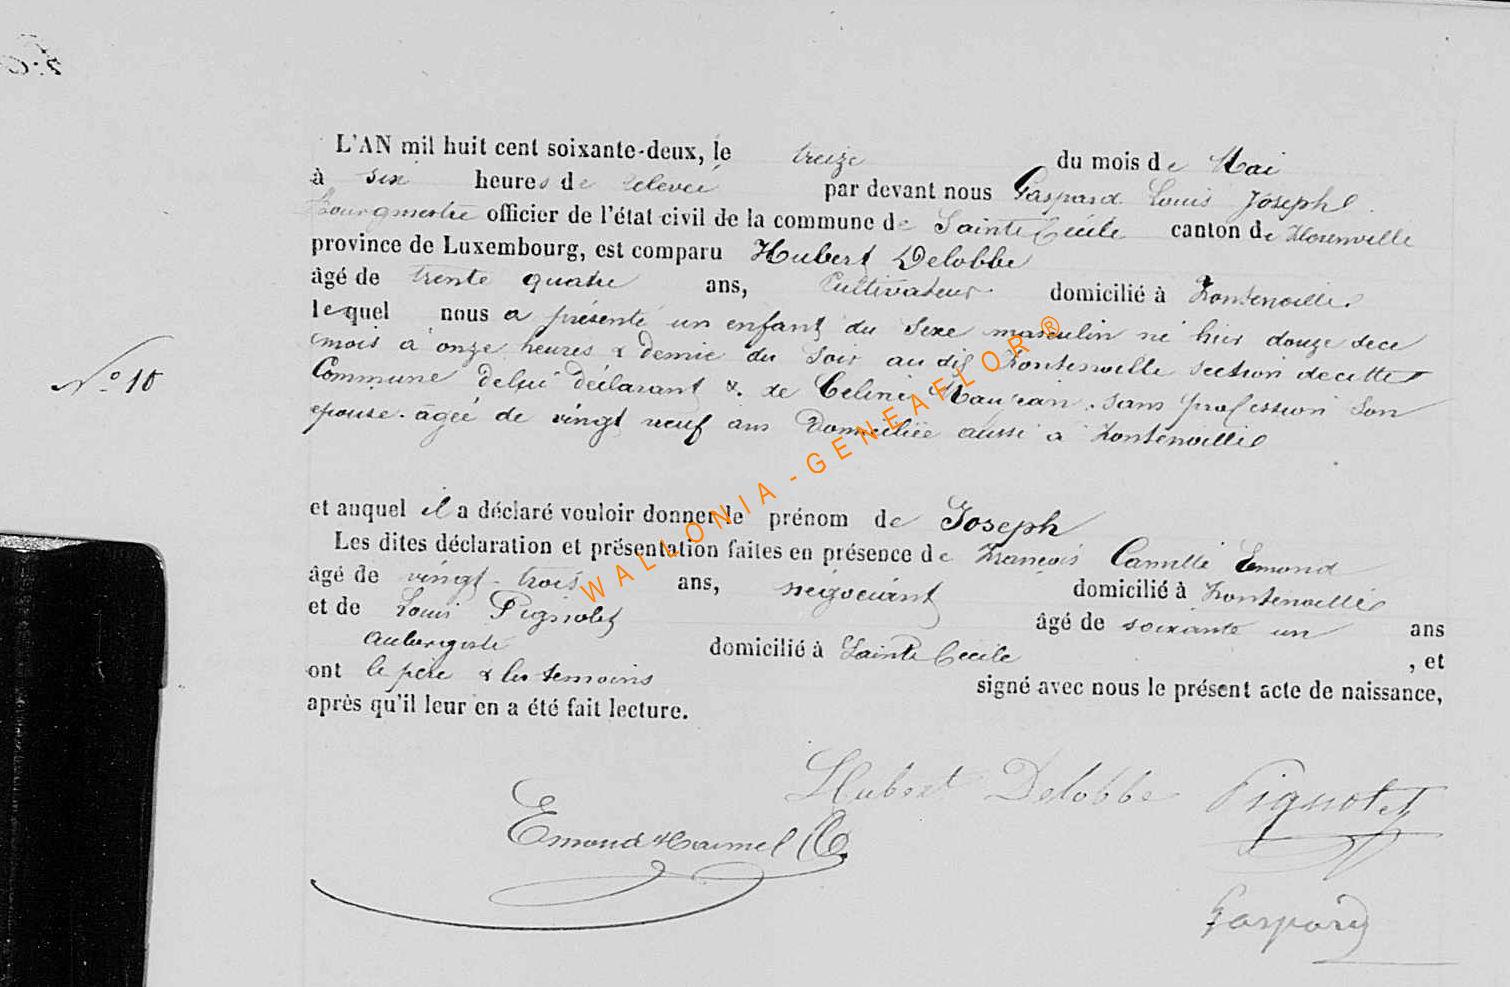 L'AN mil huit cent soixante-deux, le treize du mois de Mai
à six heures de relevée par devant nous Gaspard Louis Joseph
Bourgmestre officier de l'état civil de la commune de Sainte Cécile canton de Florenville
province de Luxembourg, est comparu Hubert Delobbe
âgé de trente quatre ans, Cultivateur domicilié à Fontenoille
lequel nous a présenté un enfant du sexe masculin né hier douze de ce
mois à onze heures & demie du soir au dit Fontenoille section de cette
N° 10
Commune de lui déclarant & de Celine Maujean, sans profession son
épouse âgée de vingt neuf ans domiciliée aussi à Fontenoille
et auquel il a déclaré vouloir donner le prénom de Joseph
Les dites déclaration et présentation faites en présence de François Camille Emond
âgé de vingt-trois ans, négociant domicilié à Fontenoille
et de Louis Pignolet âgé de soixante un ans
aubergiste domicilié à Sainte Cécile , et
ont le père & les temoins signé avec nous le présent acte de naissance,
après qu'il leur en a été fait lecture.
Hubert Delobbe Pignolet
Emond
Gaspard
WALLONIA - GENEAFLOR ®